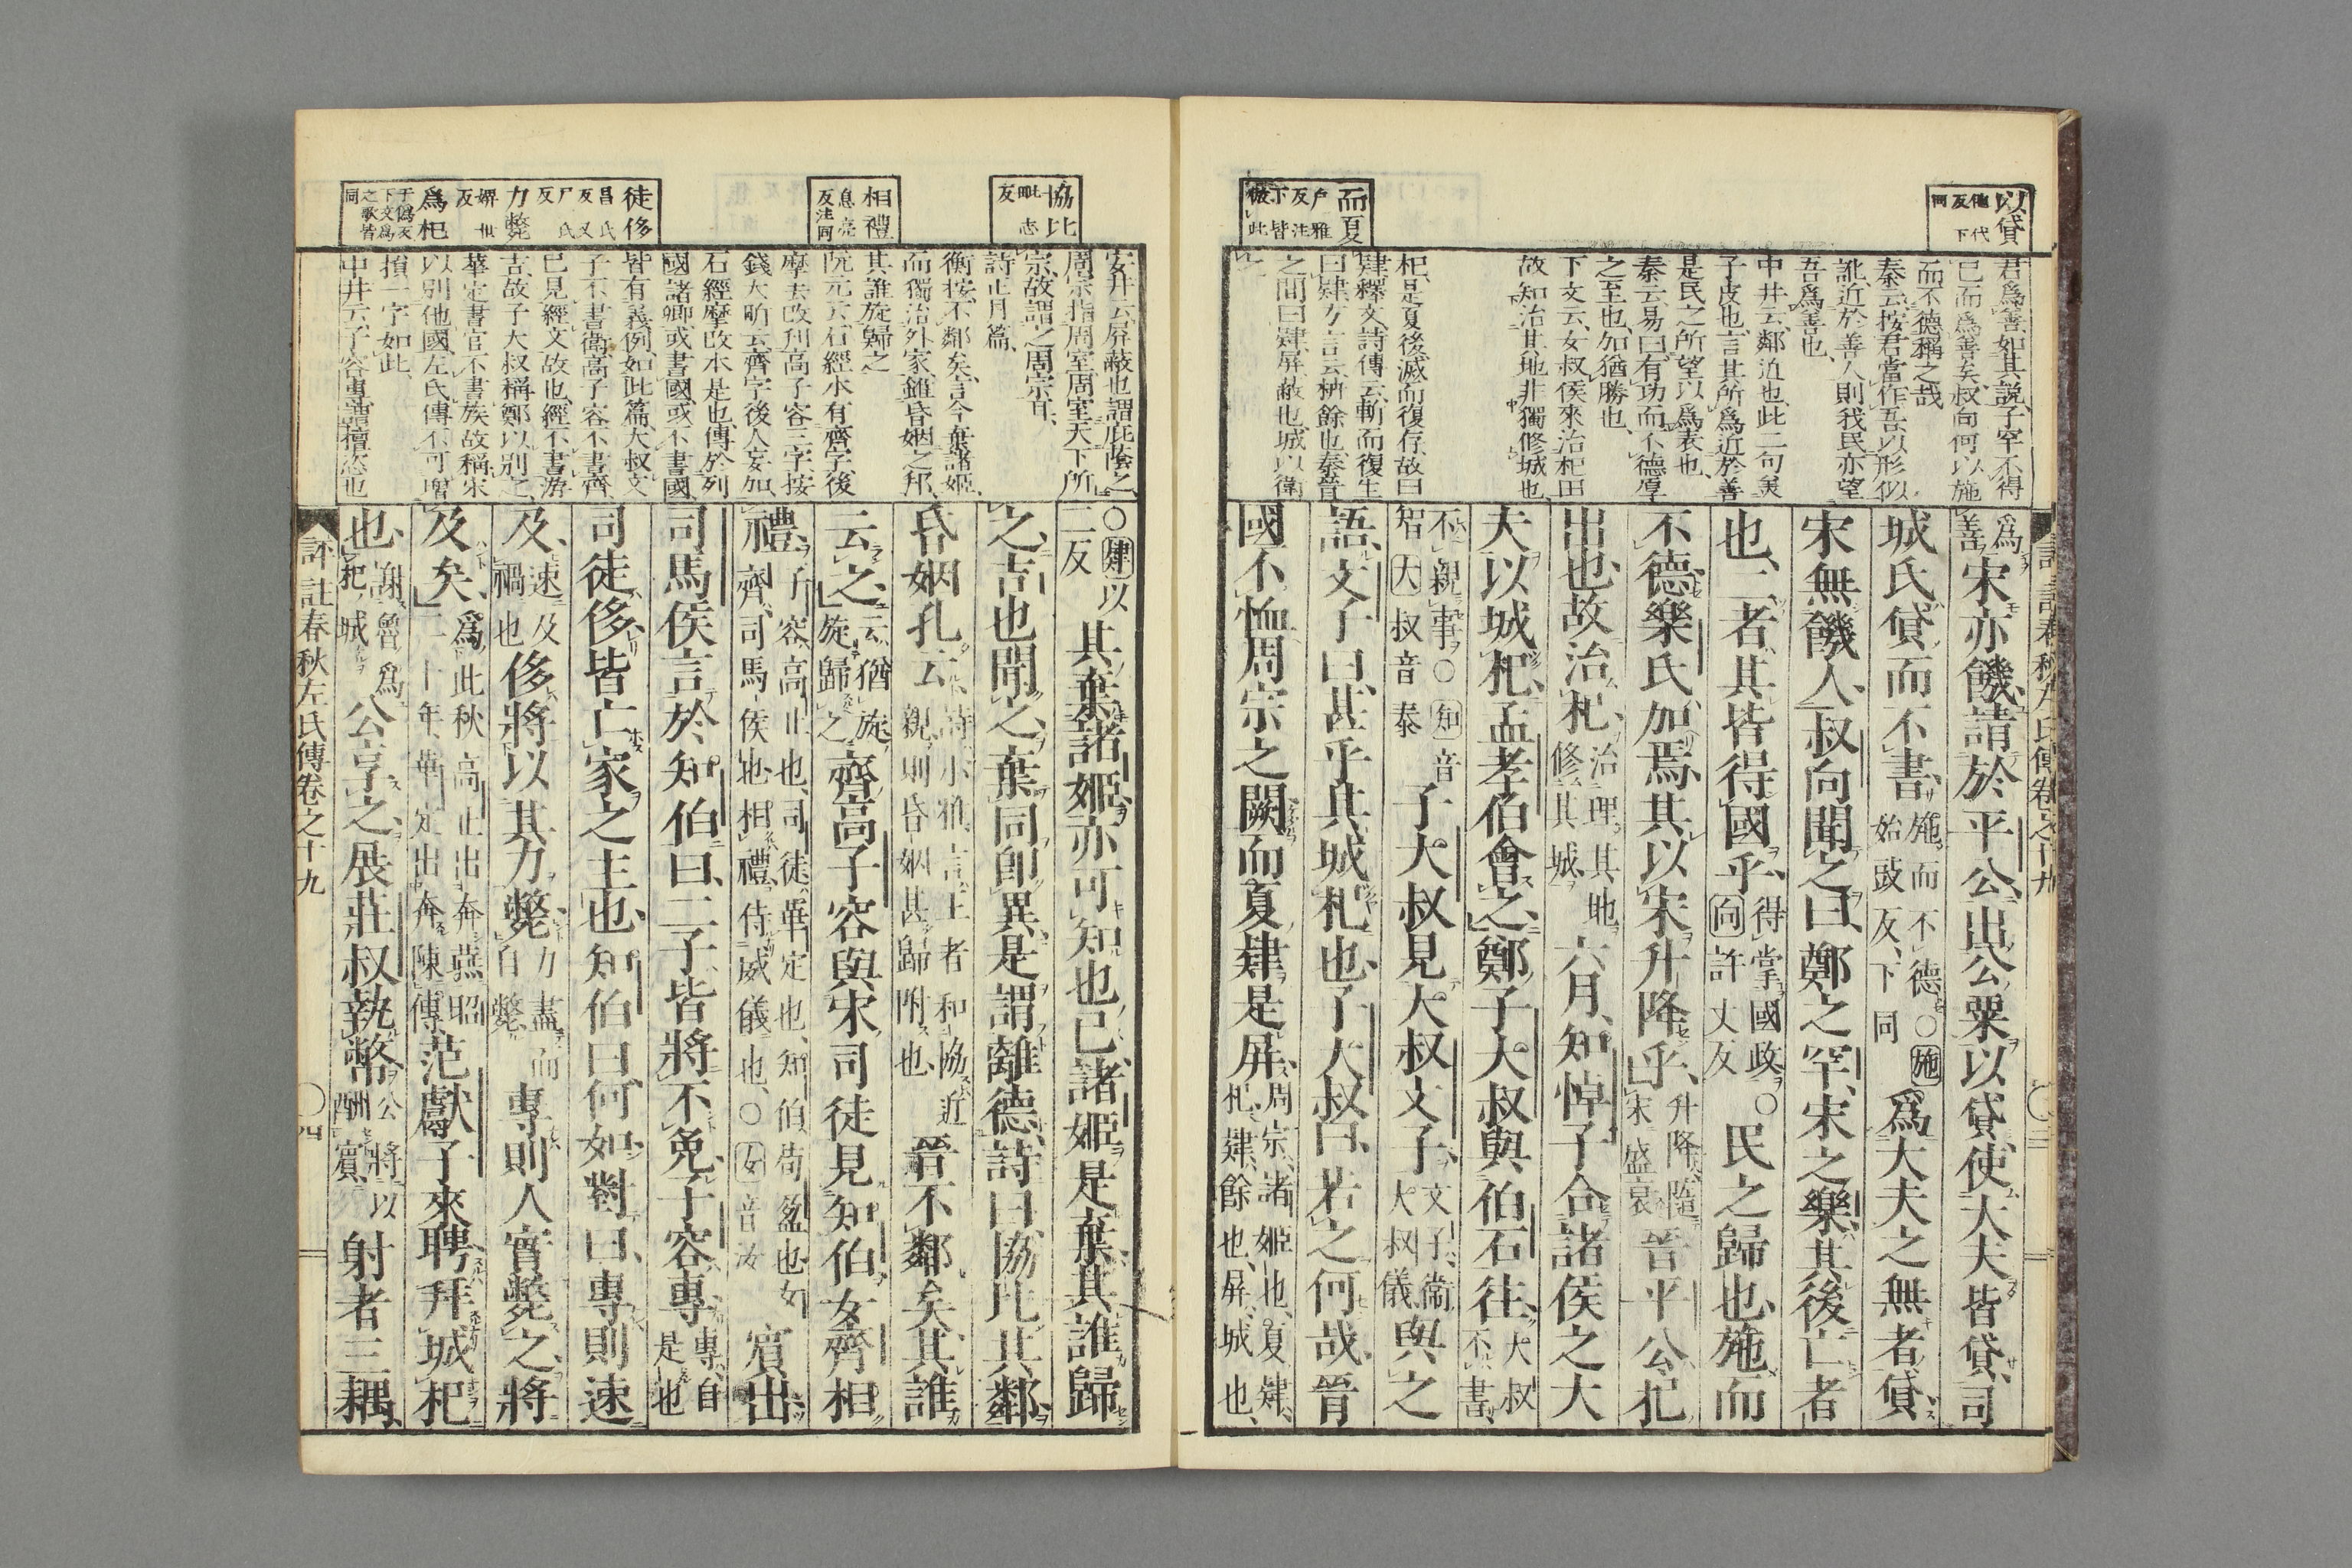 以貸
他代
反下
同
而夏
戶雅
反注
下皆
倣此
君爲善如其說子罕不得
已而爲善矣叔向何以施
而不德稱之哉
秦云按君當作吾以形似
訛近於善人則我民亦望
吾爲善也
中井云鄰迫也此二句美
子皮也言其所爲近於善
是民之所望以爲表也
秦云易曰有功而不德厚
之至也加猶勝也
下文云女叔侯來治杞田
故知治其地非獨修城也
杞是夏後滅而復存故曰
肄釋文詩傳云斬而復生
曰肄方言云枿餘也秦晉
之間曰肄屏蔽也城以衛
之
爲善宋亦饑請於平公出公粟以貸使大夫皆貸司
城氏貸而不書施而不德○施始豉反下同爲大夫之無者貸
宋無饑人叔向聞之曰鄭之罕宋之樂其後亡者
也二者其皆得國乎得掌國政○向許丈反民之歸也施而
不德樂氏加焉其以宋升降乎升降隨宋盛衰晉平公杞
出也故治杞治理其地修其城六月知悼子合諸侯之大
夫以城杞孟孝伯會之鄭子大叔與伯石往大叔不書
不親事○知音智大叔音泰子大叔見大叔文子文子衛大叔儀與之
語文子曰甚乎其城杞也子大叔曰若之何哉晉
國不恤周宗之闕而夏肄是屏周宗諸姬也夏肄杞肄餘也屏城也
評註春秋左氏傳卷之十九
協比
毗志
反
相禮
息亮
反注同
徒侈
昌氏
反又
尸氏
反
力斃
婢世
反
爲杞
于僞反
下文爲
之歌皆
同
安井云屏蔽也謂庇蔭之
周宗指周室周室天下所
宗故謂之周宗耳
詩正月篇
衡按不鄰矣言今棄諸姬
而獨治外家雖昏姻之邦
其誰旋歸之
阮元云石經水有齊字後
摩去改刋高子容三字按
錢大昕云齊字後人妄加
石經摩改本是也傳於列
國諸卿或書國或不書國
皆有義例如此篇大叔文
子不書衛高子容不書齊
已見經文故也經不書游
吉故子大叔稱鄭以別之
華定書官不書族故稱宋
以別他國左氏傳不可增
損一字如此
中井云子容專謂擅恣也
○肄以二反其棄諸姬亦可知也已諸姬是棄其誰歸
之吉也聞之棄同卽異是謂離德詩曰協比其鄰
昏姻孔云詩小雅言王者和協近親則昏姻甚歸附也晉不鄰矣其誰
云之云猶旋旋歸之齊高子容與宋司徒見知伯女齊相
禮子容高止也司徒華定也知伯荀盈也女齊司馬侯也相禮侍威儀也○女音汝賓出
司馬侯言於知伯曰二子皆將不免子容專專自是也
司徒侈皆亡家之主也知伯曰何如對曰專則速
及速及禍也侈將以其力斃力盡而自斃專則人實斃之將
及矣爲此秋高止出奔燕昭二十年華定出奔陳傳范獻子來聘拜城杞
也謝魯爲杞城公享之展莊叔執幣公將以酬賓射者三耦
評註春秋左氏傳卷之十九
○四